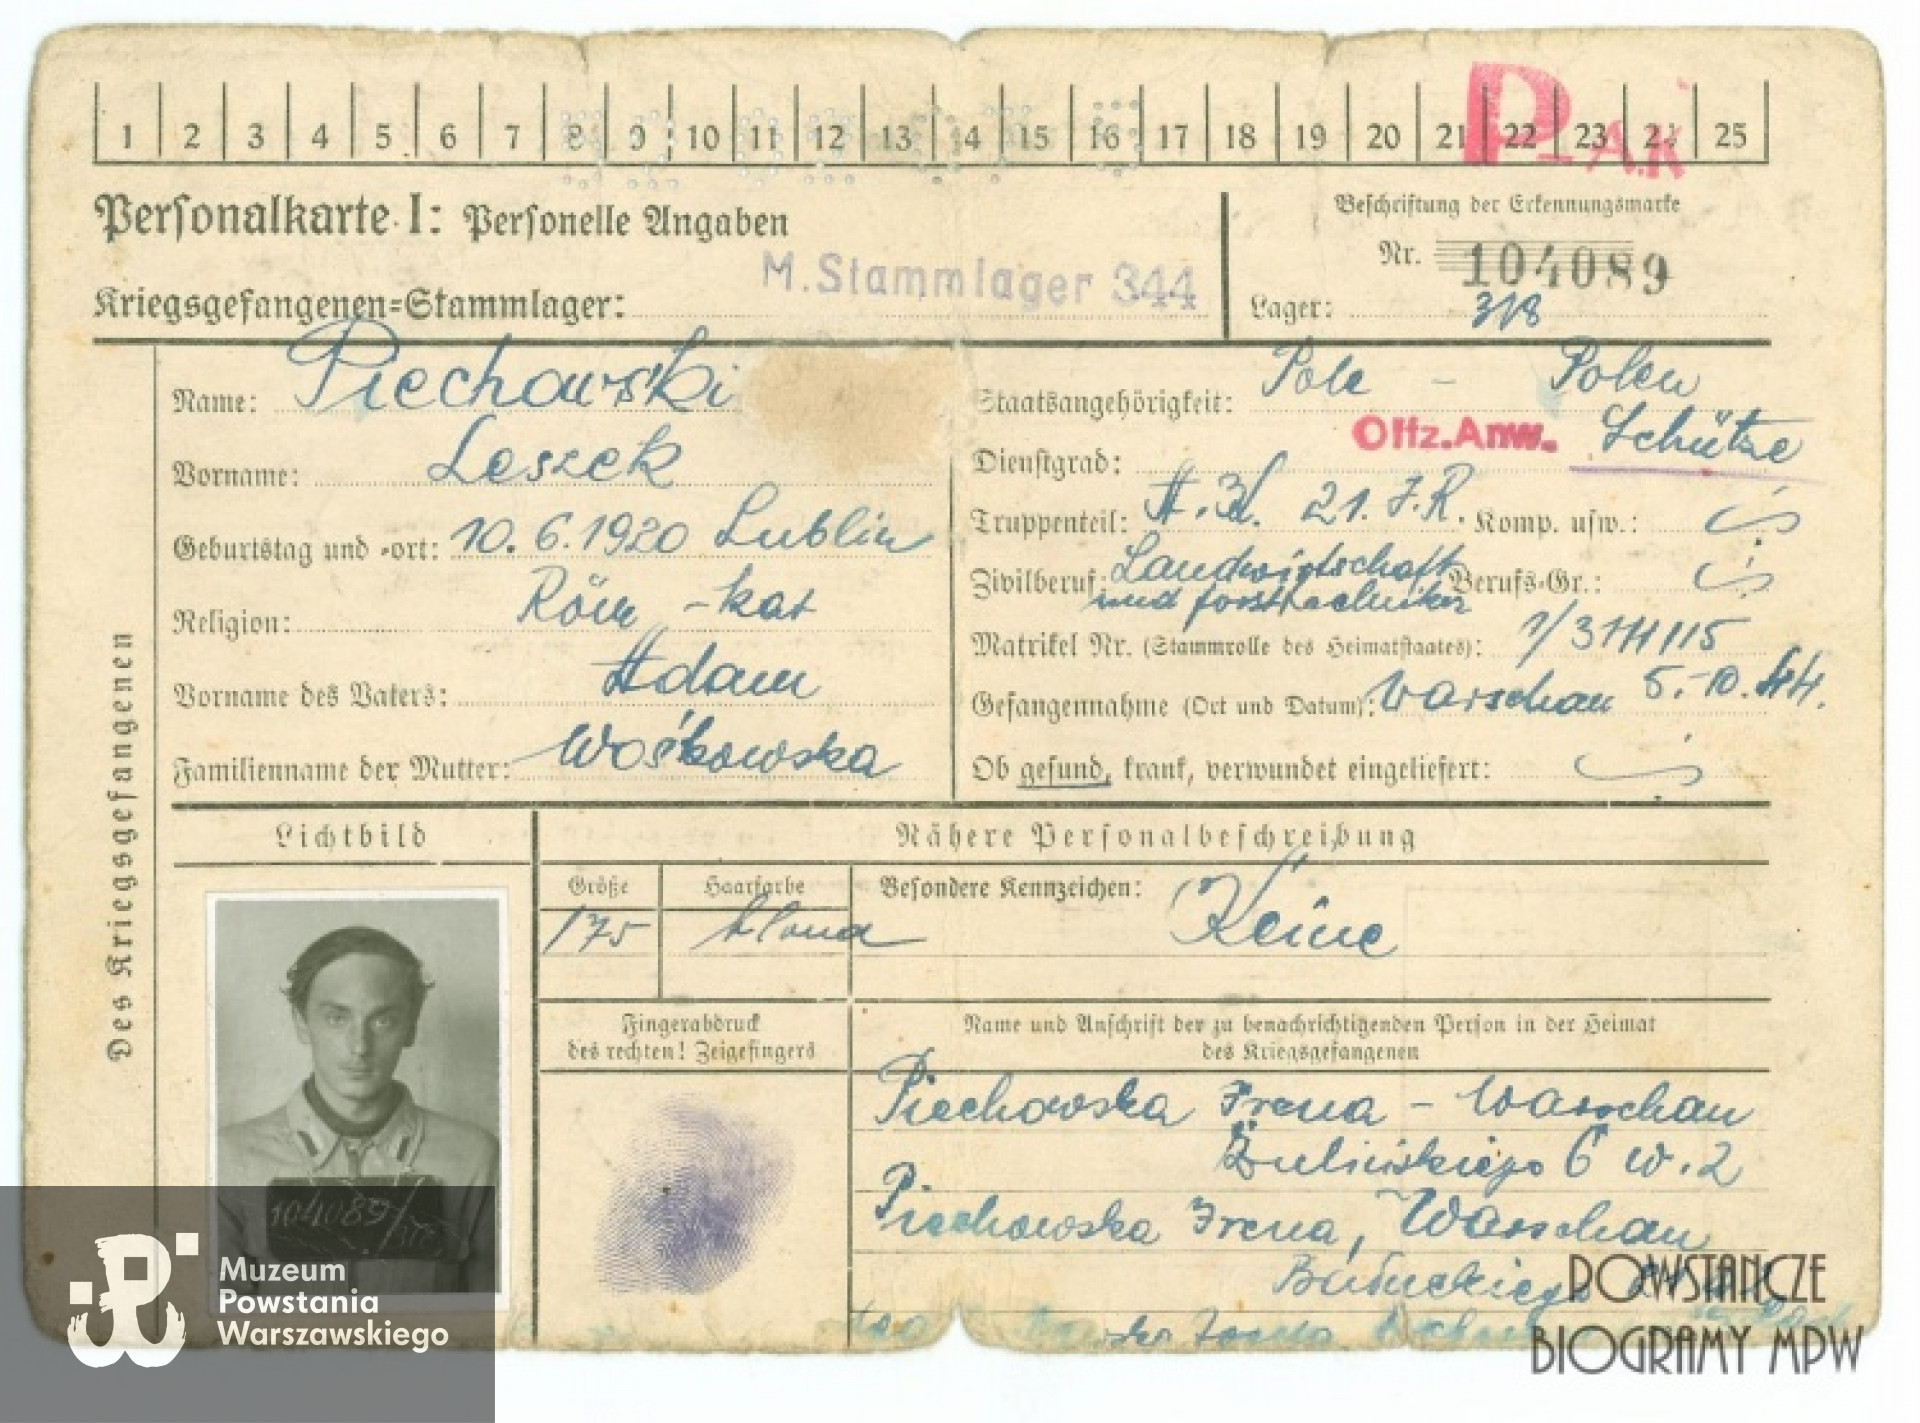 1 2 3 4 5 6 7 8 9 10 11 12 13 14 15 16 17 18 19 20 21 22 23 24 25
P A.K
Personalkarte I: Personelle Angaben
Beschriftung der Erkennungsmarke
Nr. 104089
M.Stammlager 344
Kriegsgefangenen=Stammlager:
Lager: 318
Des Kriegsgefangenen
Name: Piechowski
Vorname: Leszek
Geburtstag und -ort: 10.6.1920 Lublin
Religion: Röm-kat
Vorname des Vaters: Adam
Familienname der Mutter: Wośkowska
Staatsangehörigkeit: Pole - Polen
Dienstgrad: Offz.Anw. Schütze
Truppenteil: A.K. 21. J.R. Komp. usw.:
Zivilberuf: Landwirtschaft Berufs-Gr.:
und forsttechniker
Matrikel Nr. (Stammrolle des Heimatstaates):
Gefangennahme (Ort und Datum): Warschau 5.-10.44.
Ob gesund, krank, verwundet eingeliefert:
Lichtbild
Nähere Personalbeschreibung
Größe
Haarfarbe
Besondere Kennzeichen: Keine
175
blond
Fingerabdruck
des rechten! Zeigefingers
Name und Anschrift der zu benachrichtigenden Person in der Heimat
des Kriegsgefangenen
Piechowska Irena - Warschau
Żulińskiego 6 W.2
Piechowska Irena, Warschau
104089/
Muzeum
Powstania
Warszawskiego
POWSTAŃCZE
BIOGRAMY MPW